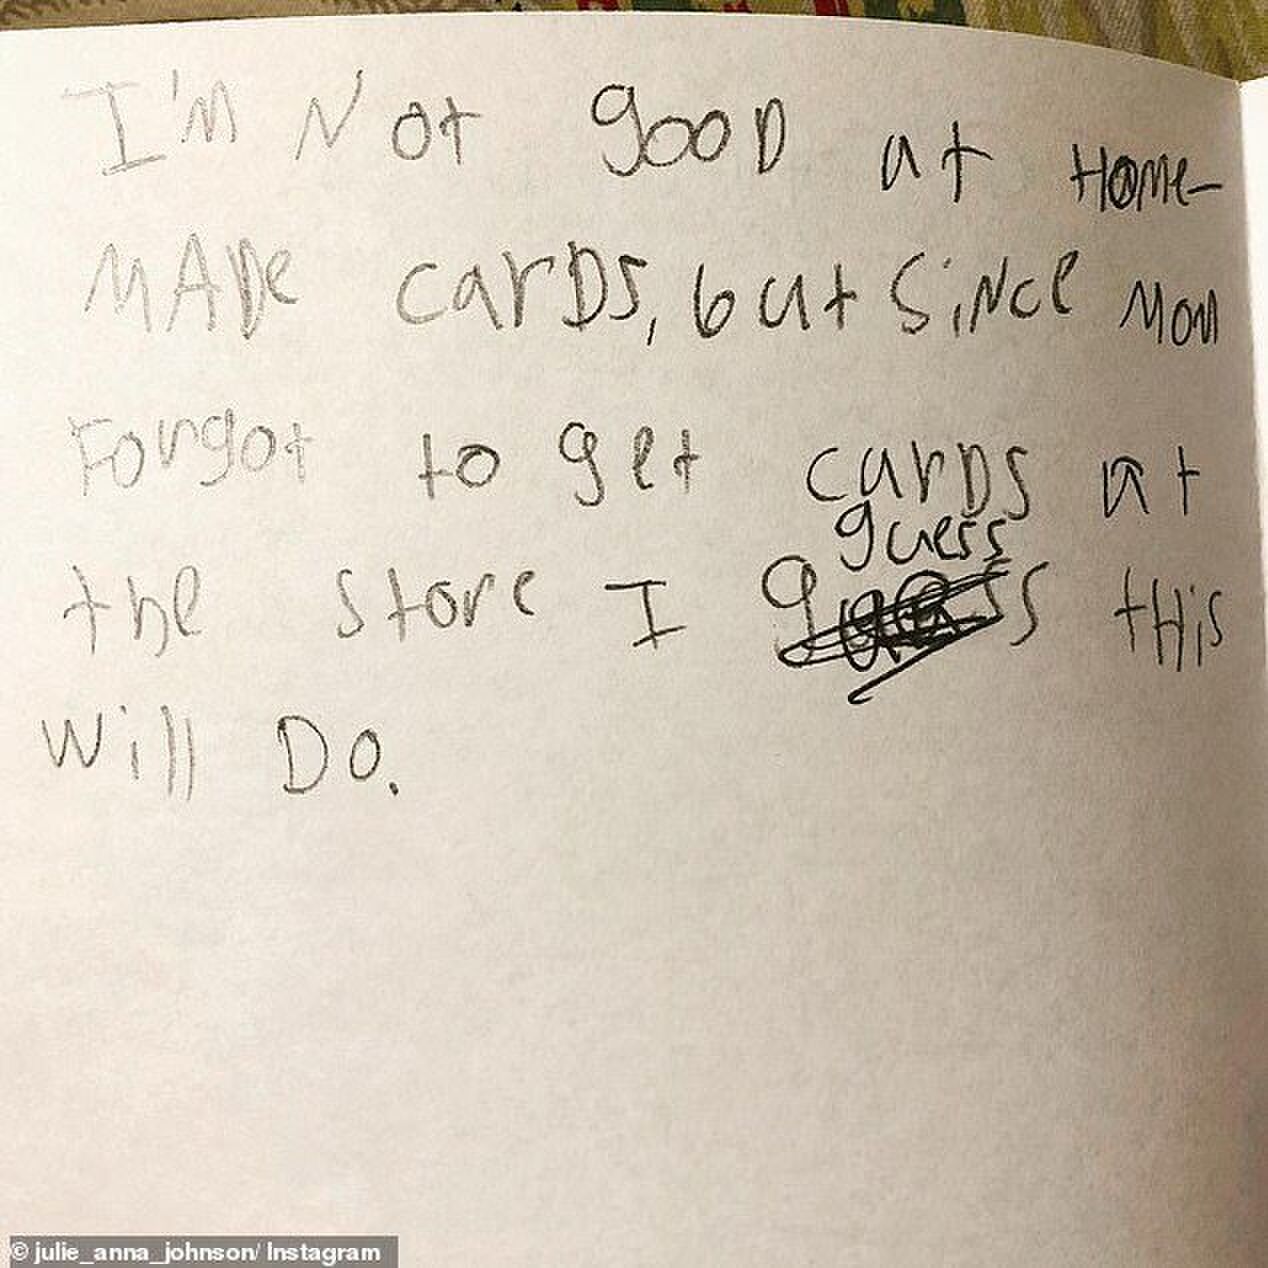 I'm Not good at Home-
MADe carDs, but SiNce Mom
Forgot to get carDs at
guess
the store I this
will Do.
© julie_anna_johnson/ Instagram